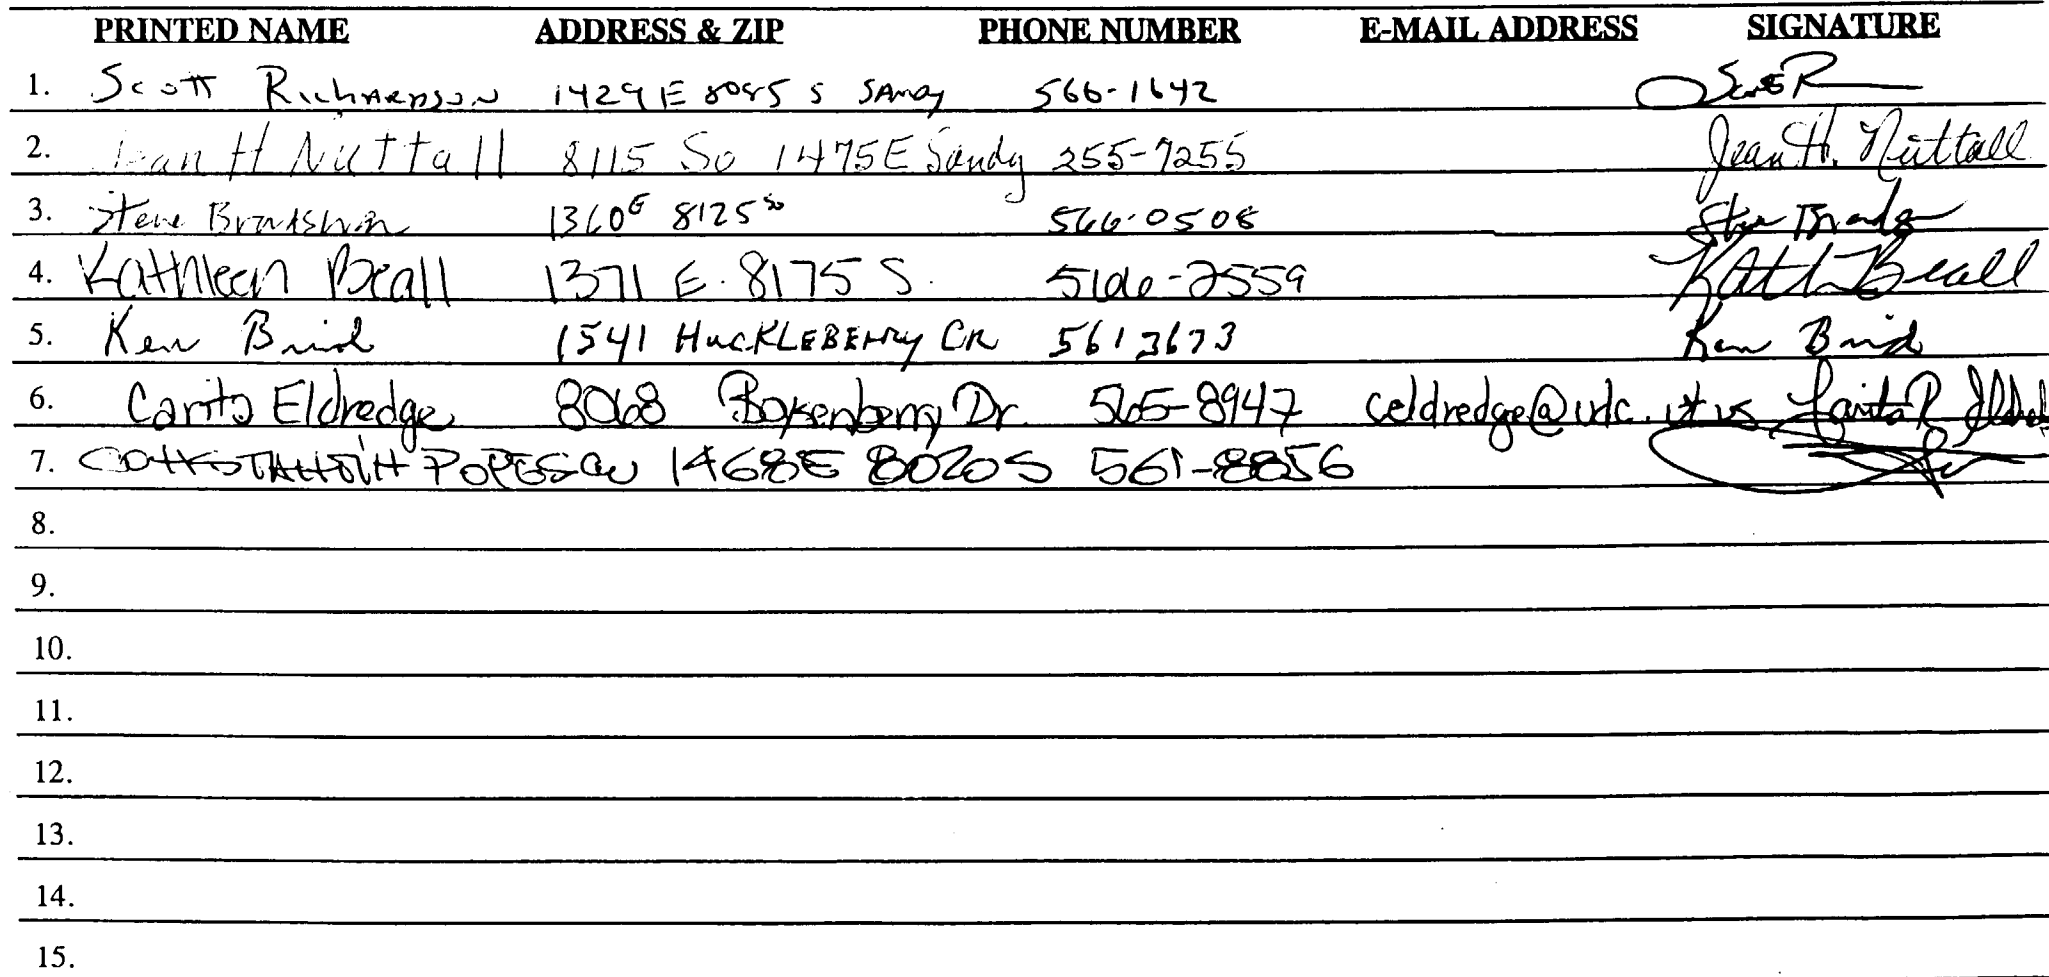 PRINTED NAME ADDRESS & ZIP PHONE NUMBER E-MAIL ADDRESS SIGNATURE
1. Scott Richardson 1429 E 8085 S Sandy 566-1642
2. Jean H Nuttall 8115 So 1475 E Sandy 255-7255 Jean H. Nuttall
3. Steve Bradshaw 1360 E 8125 So 566-0508
4. Kathleen Beall 1371 E. 8175 S. 566-2559 Kath Beall
5. Ken 1541 HUCKLEBERRY CR 561 3673 Ken
6. Carita Eldredge 8068 Boysenberry Dr. 565-8947 celdredge@udc.ut.us Carita R
7. POPESCU 1468 E 8020 S 561-8856
8.
9.
10.
11.
12.
13.
14.
15.